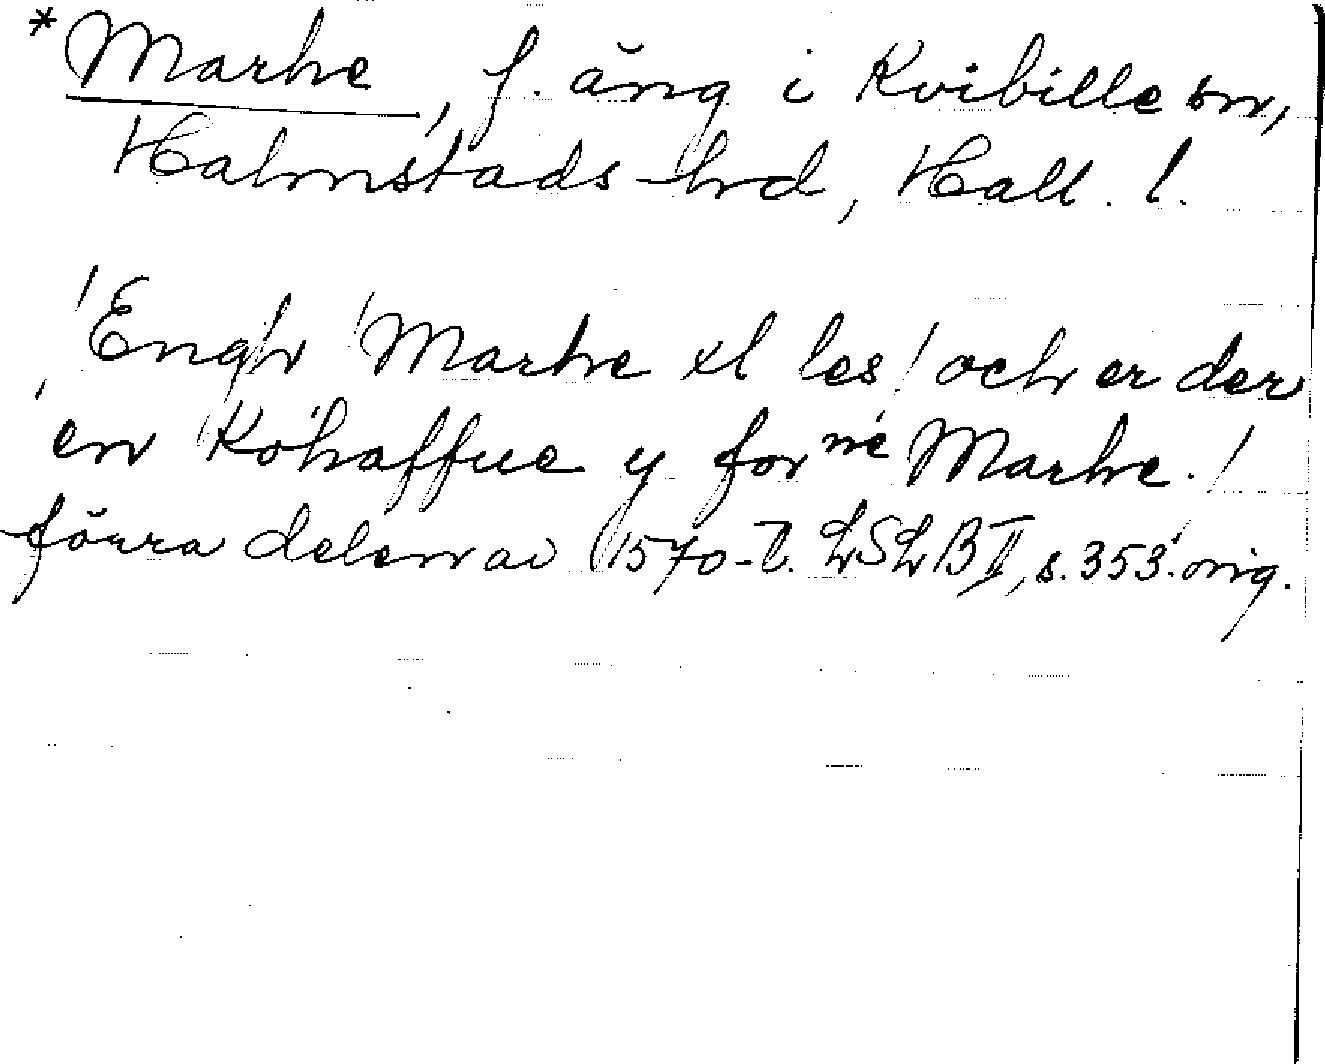 *Marhe, f. äng i Kvibille sn,
Halmstads hd, Hall. l.
/Engh /Marhe xl les/ och er der
en Kohaffue y for ne Marhe./
förra delen av 1570-t. LSLB II, s. 353. orig.